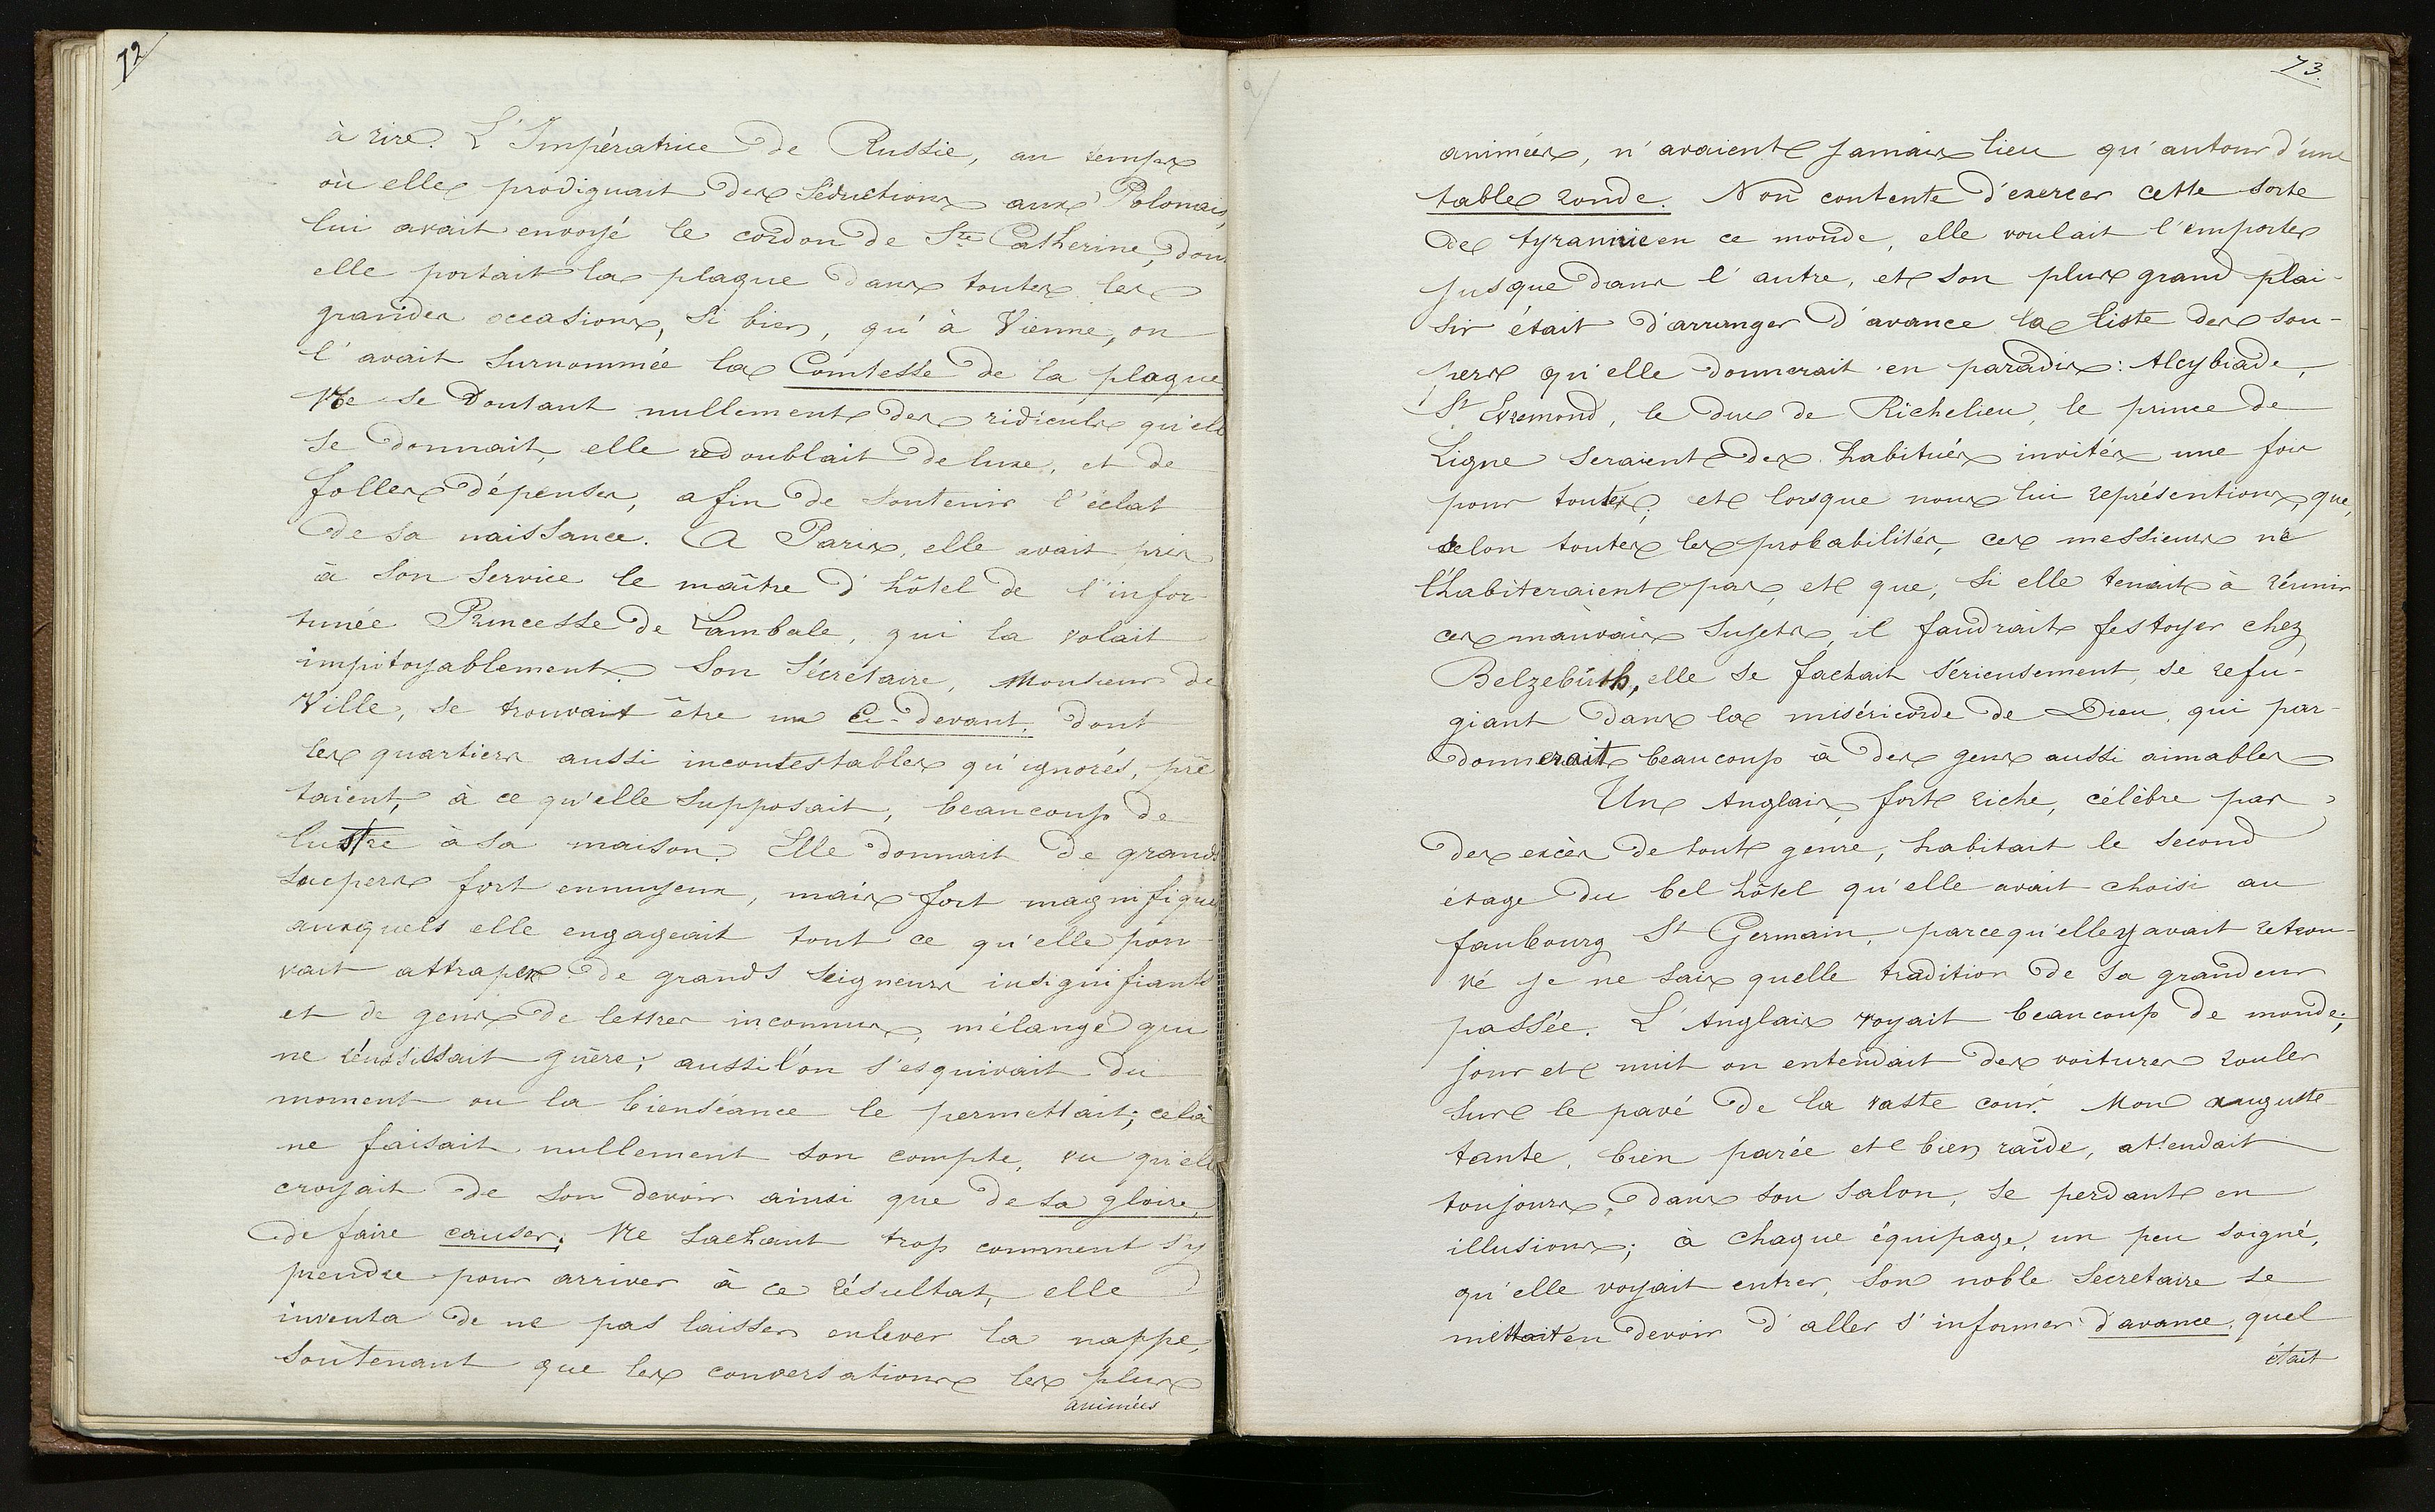 72
à rire. L'Impératrice de Russie, au temps
où elle prodiguait des séductions aux Polonais,
lui avait envoyé le cordon de Ste Catherine, dont
elle portait la plaque dans toutes les
grandes occasions, si bien, qu'à Vienne, on
l'avait surnommée la Comtesse de la plaque
Ne se doutant nullement des ridicules qu'elle
se donnait, elle redoublait de luxe, et de
folles dépenses, afin de soutenir l'éclat
de sa naissance. A Paris, elle avait pris
à son service le maître d'hôtel de l'infor-
tunée Princesse de Lambale, qui la volait
impitoyablement. Son sécrétaire, Monsieur de
Ville, se trouvait être un Ci-devant, dont
les quartiers aussi incontestables qu'ignorés, prê
taient, à ce qu'elle supposait, beaucoup de
lustre à sa maison. Elle donnait de grands
soupers fort ennuyeux, mais fort magnifiques
auxquels elle engageait tout ce qu'elle pou-
vait attraper de grands seigneurs insignifiants
et de gens de lettres inconnus, mélange qui
ne réussissait guère; aussi l'on s'esquivait du
moment ou la bienséance le permettait; celà
ne faisait nullement son compte, vu qu'elle
croyait de son devoir ainsi que de sa gloire,
de faire causer. Ne sachant trop comment s'y
prendre pour arriver à ce résultat, elle
inventa de ne pas laisser enlever la nappe,
soutenant que les conversations les plus
animées
73.
animées, n'avaient jamais lieu qu'autour d'une
table ronde. Non contente d'exercer cette sorte
de tyrannie en ce monde, elle voulait l'emporter
jusque dans l'autre, et son plus grand plai-
sir était d'arranger d'avance la liste des sou-
pers qu'elle donnerait en paradis: Alcybiade,
St Evremond, le duc de Richelieu, le prince de
Ligne seraient des habitués invités une fois
pour toutes; et lorsque nous lui représentions, que,
selon toutes les probabilités, ces messieurs ne
l'habiteraient pas, et que, si elle tenait à réunir
ces mauvais sujets, il faudrait festoyer chez
Belzebuth, elle se fachait sérieusement, se refu-
giant dans la miséricorde de Dieu, qui par-
donnerait beaucoup à des gens aussi aimables
Un Anglais, fort riche, célèbre par
des excès de tout genre, habitait le second
étage du bel hôtel qu'elle avait choisi au
faubourg St Germain, parcequ'elle y avait retrou-
vé je ne sais quelle tradition de sa grandeur
passée. L'Anglais voyait beaucoup de monde;
jour et nuit on entendait des voitures rouler
sur le pavé de la vaste cour. Mon auguste
tante, bien parée et bien raide, attendait
toujours, dans son salon, se perdant en
illusions; à chaque équipage, un peu soigné,
qu'elle voyait entrer, son noble secretaire se
mettait en devoir d'aller s'informer d'avance, quel
était